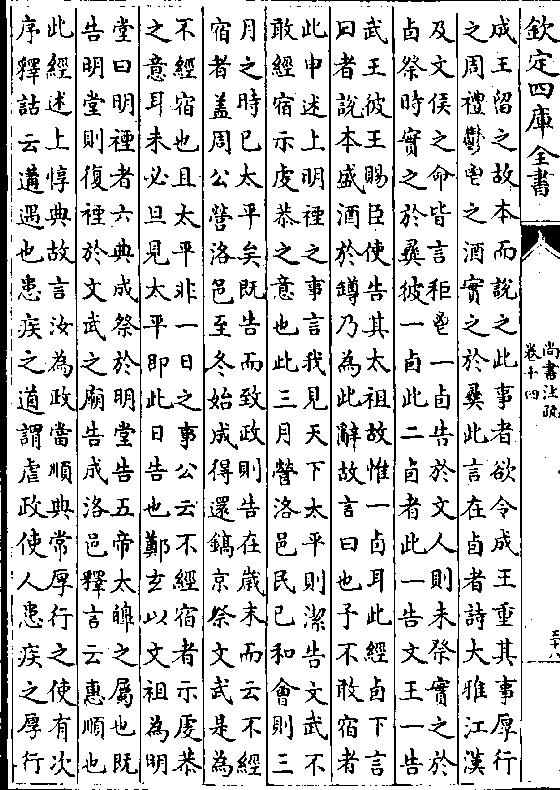 欽定四庫全書
尚書注疏
卷十四
三十八
成王留之故本而說之此事者欲令成王重其事厚行
之周禮鬱鬯之酒實之於彝此言在卣者詩大雅江漢
及文侯之命皆言秬鬯一卣告於文人則未祭實之於
卣祭時實之於彝彼一卣此二卣者此一告文王一告
武王彼王賜臣使告其太祖故惟一卣耳此經卣下言
曰者說本盛酒於罇乃為此辭故言曰也予不敢宿者
此申述上明禋之事言我見天下太平則潔告文武不
敢經宿示虔恭之意也此三月營洛邑民已和會則三
月之時已太平矣既告而致政則告在歲末而云不經
宿者蓋周公營洛邑至冬始成得還鎬京祭文武是為
不經宿也且太平非一日之事公云不經宿者示虔恭
之意耳未必旦見太平即此日告也鄭玄以文祖為明
堂曰明禋者六典成祭於明堂告五帝太皥之屬也既
告明堂則復禋於文武之廟告成洛邑釋言云惠順也
此經述上惇典故言汝為政當順典常厚行之使有次
序釋詁云遘遇也患疾之道謂虐政使人患疾之厚行